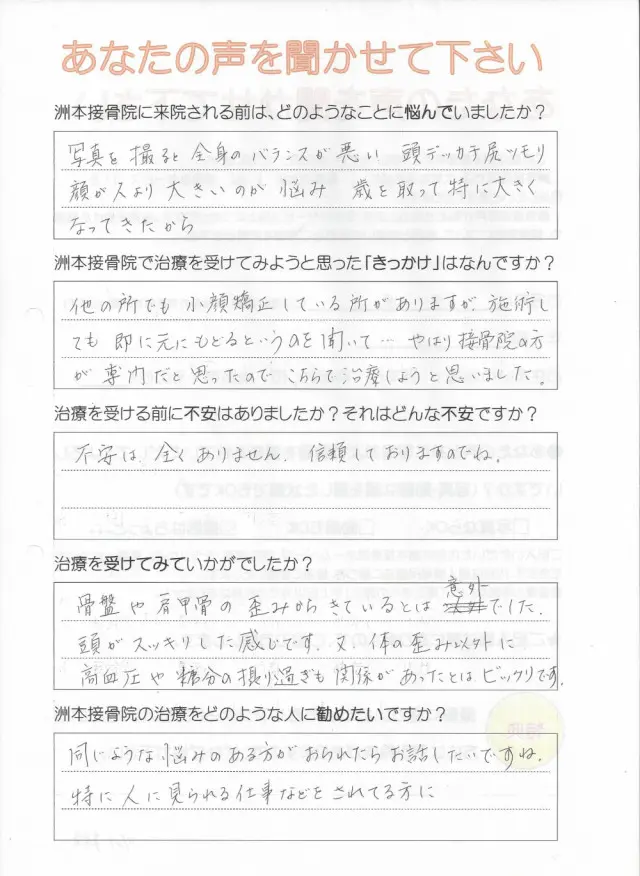 あなたの声を聞かせて下さい
洲本接骨院に来院される前は、どのようなことに悩んでいましたか？
写真を撮ると全身のバランスが悪い 頭デッカチ尻ツモリ
顔が人より大きいのが悩み 歳を取って特に大きく
なってきたから
洲本接骨院で治療を受けてみようと思った「きっかけ」はなんですか？
他の所でも小顔矯正している所がありますが、施術し
ても即に元にもどるというのを聞いて… やはり接骨院の方
が専門だと思ったのでこちらで治療しようと思いました。
治療を受ける前に不安はありましたか？それはどんな不安ですか？
不安は、全くありません。信頼しておりますのでね。
治療を受けてみていかがでしたか？
骨盤や肩甲骨の歪みからきているとは意外でした。
頭がスッキリした感じです。又、体の歪み以外に
高血圧や糖分の摂り過ぎも関係があったとはビックリです。
洲本接骨院の治療をどのような人に勧めたいですか？
同じような悩みのある方がおられたらお話したいですね。
特に人に見られる仕事などをされてる方に